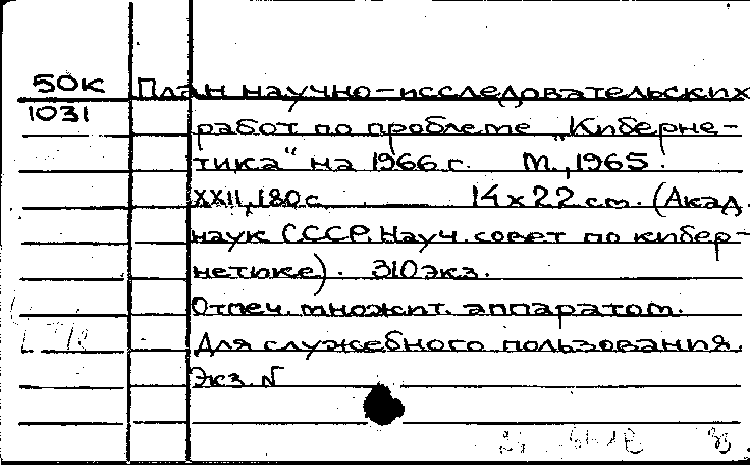 50К План научно-исследовательских
1031
работ по проблеме „Киберне-
тика“ на 1966 г. М., 1965.
XXII, 180 с. 14 x 22 см. (Акад.
наук СССР. Науч. совет по кибер-
нетике). 310 экз.
Отпеч. множит. аппаратом.
Для служебного пользования.
Экз. N